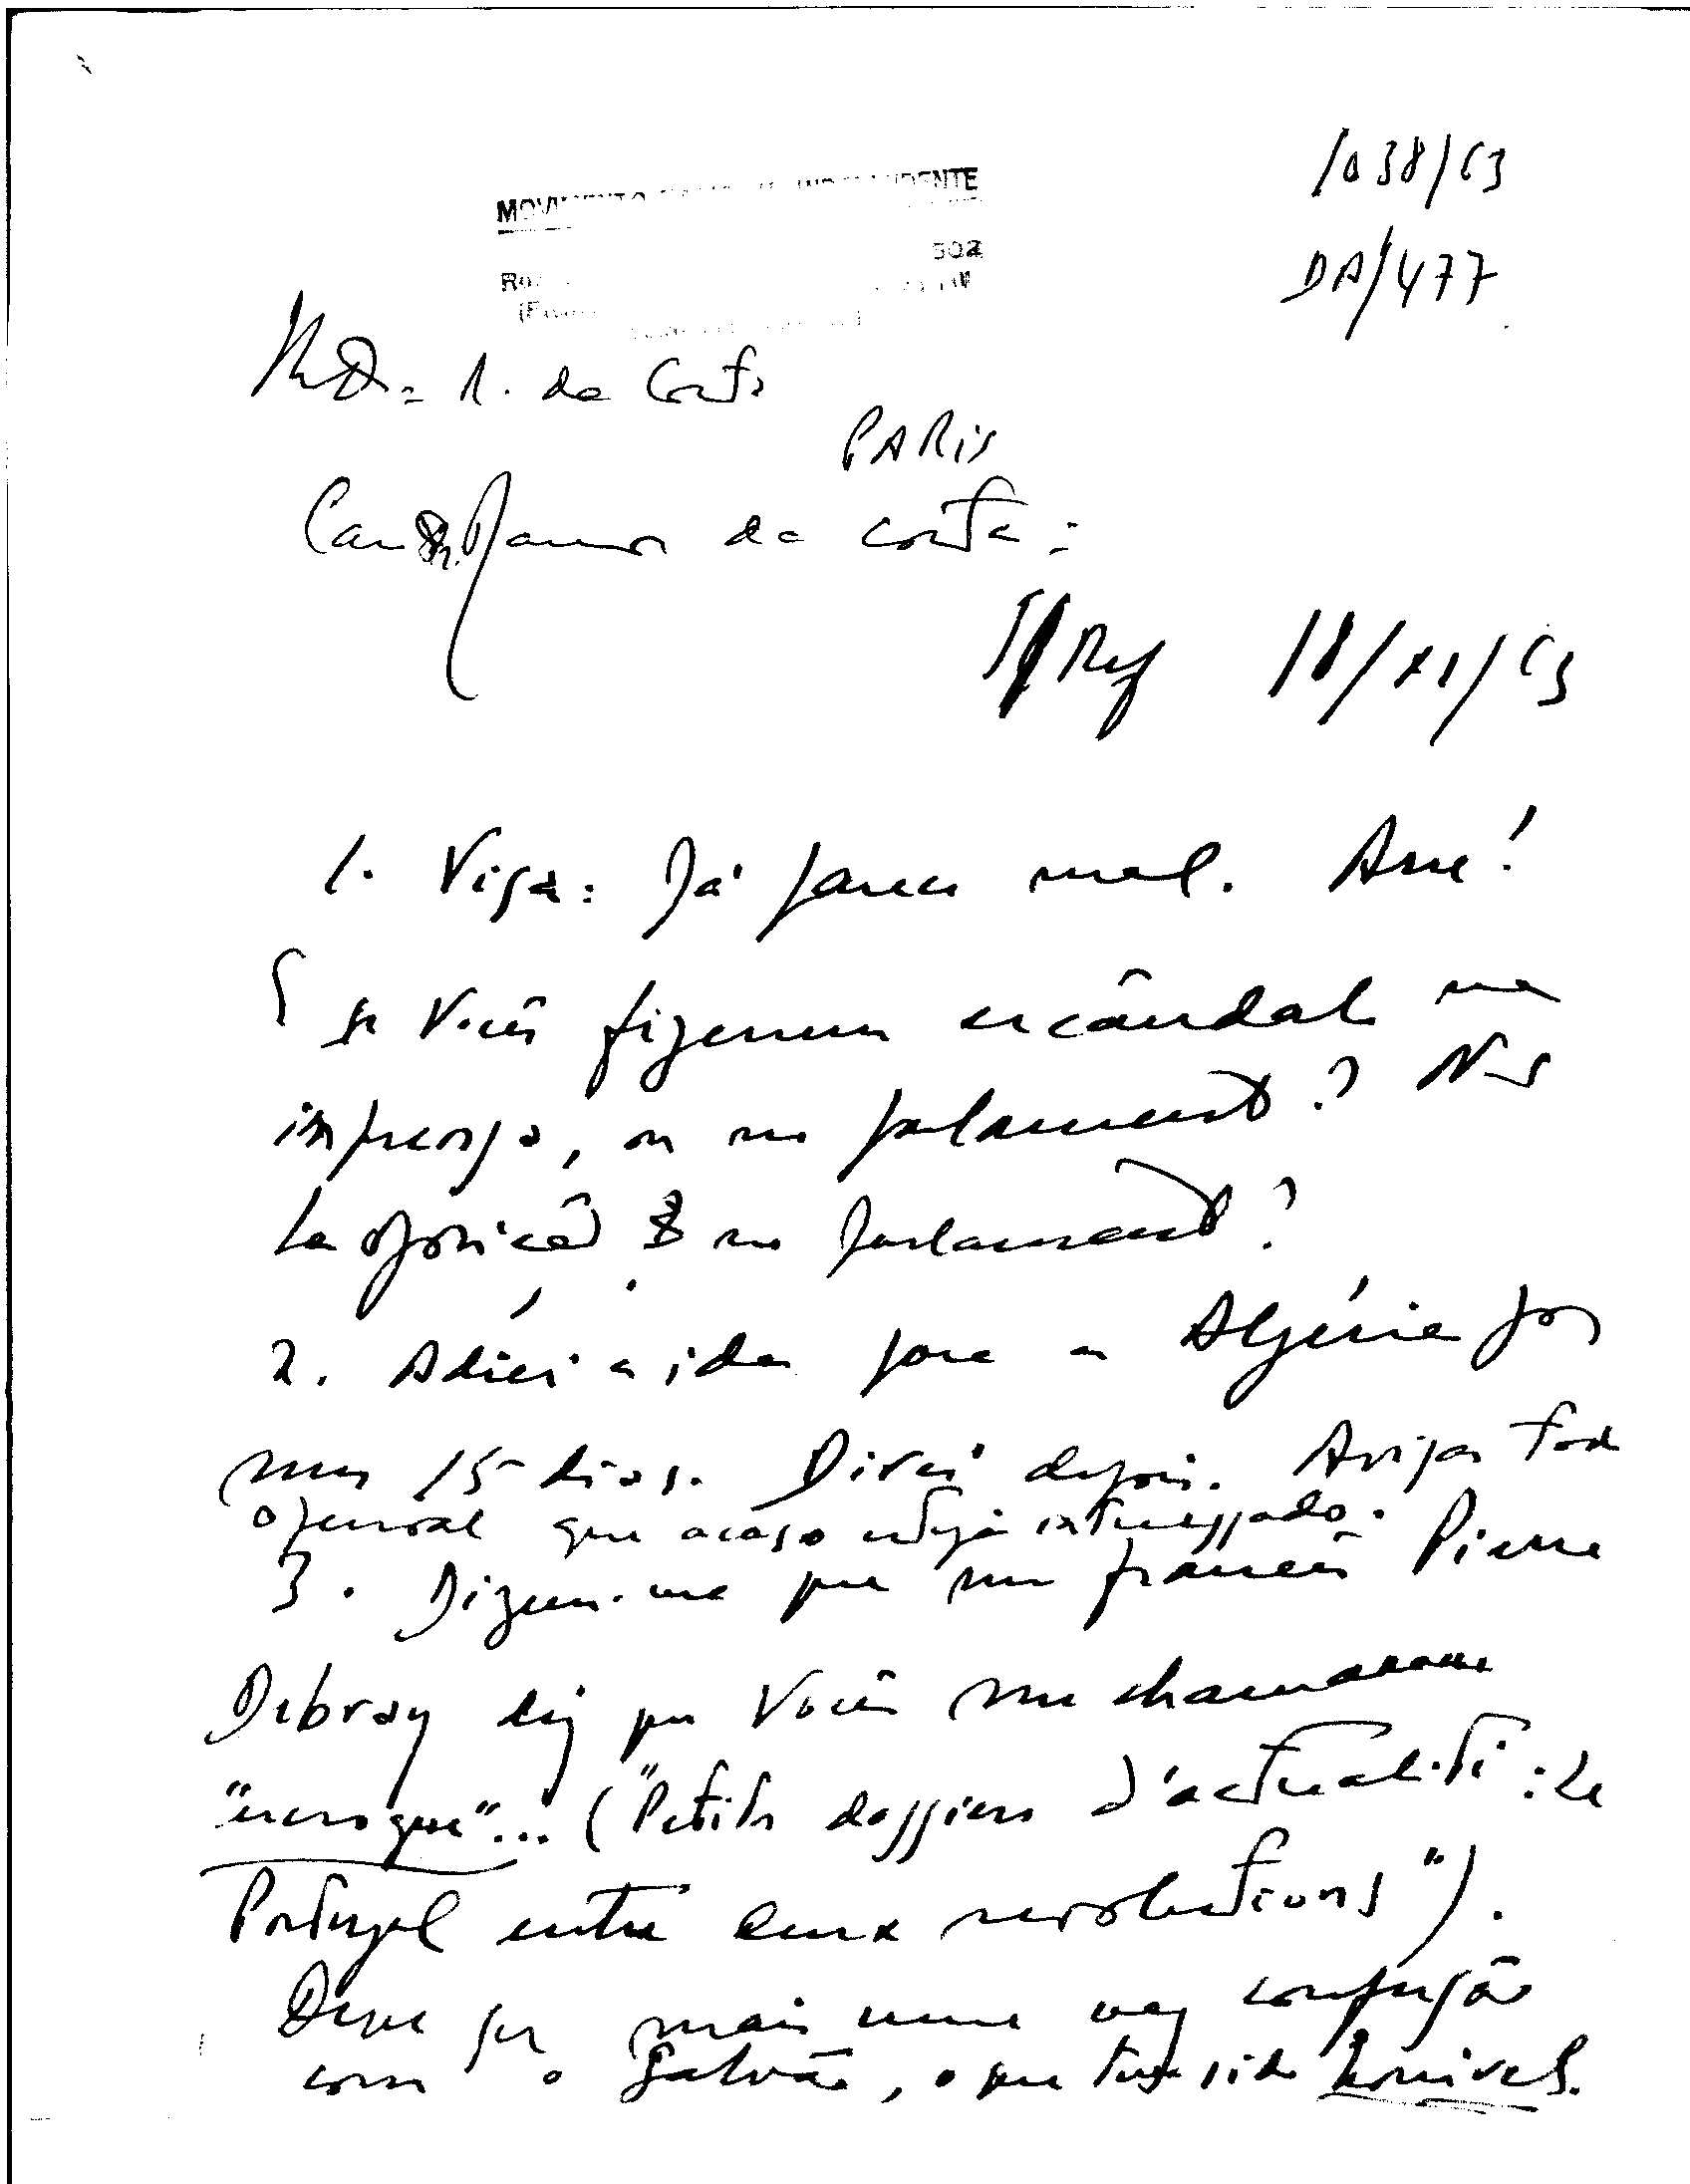 1038/63
MOVIMENTO INDEPENDENTE
DA/477
502
R. da Costa
PARIS
Caro Dr. Ramos da Costa:
Ref 18/XI/63
1. Visa: Já parece mal. Arre!
E se Vocês fizerem escândalo na
imprensa, ou no parlamento? Não
ha oposicão no Parlamento?
2. Adiei a ida para a Algéria por
uns 15 dias. Direi depois. Avisar todo
o pessoal que acaso esteja interessado.
3. Dizem-me que um francês Pierre
Debray diz que Vocês me chamaram
"escroque"... ("Petits dossiers d'actualité: Le
Portugal entre deux revolutions").
Deve ser mais uma vez confusão
com o Galvão, o que tem sido horrivel.